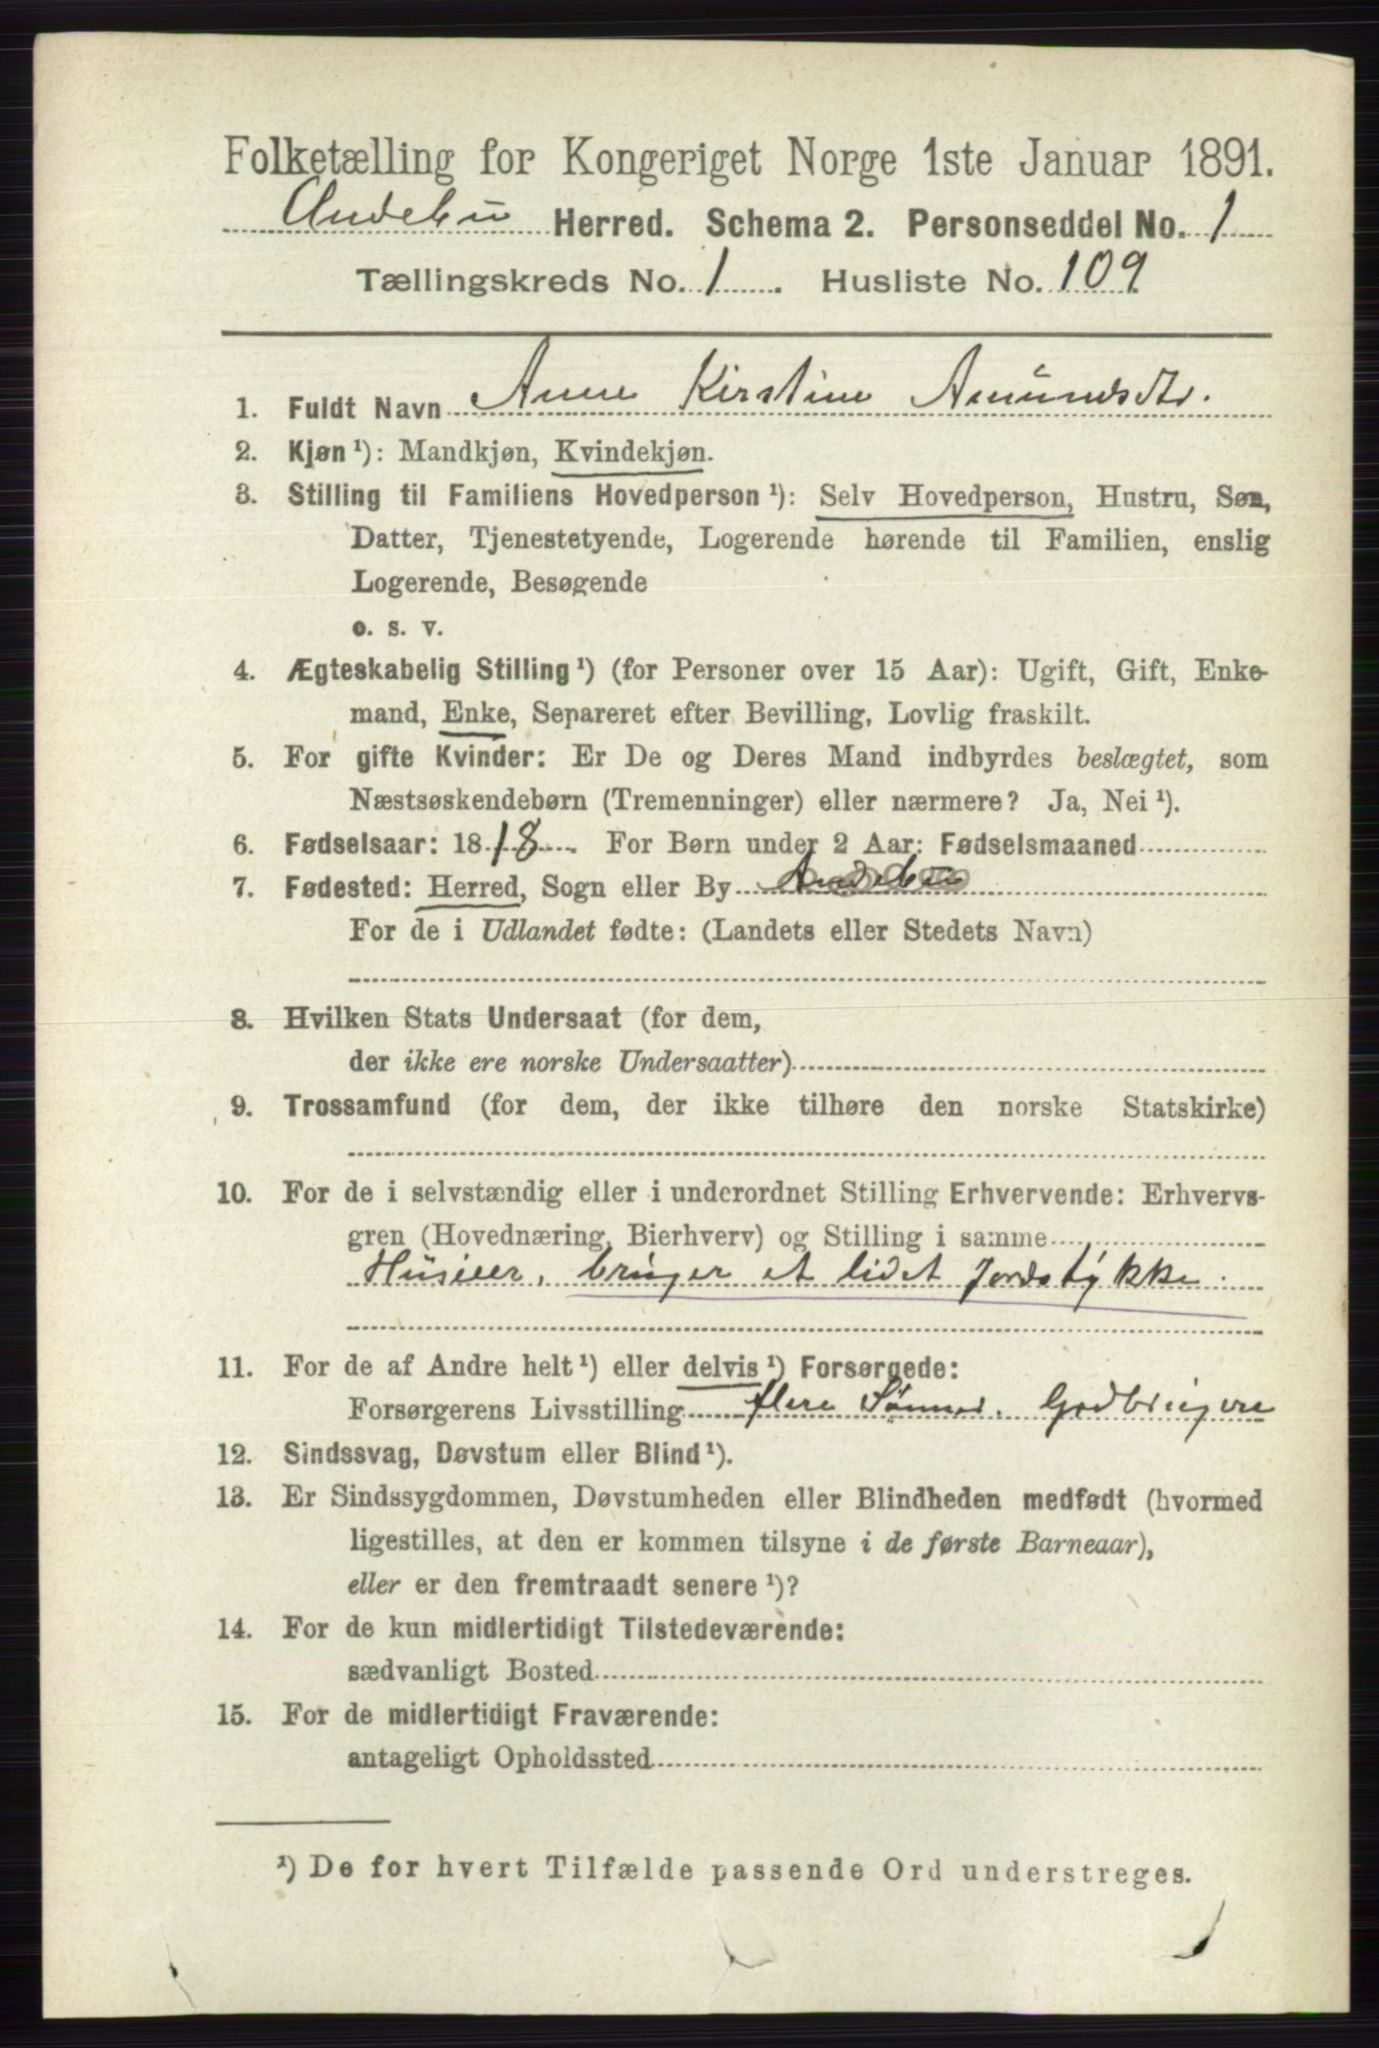 Folketælling for Kongeriget Norge 1ste Januar 1891.
Andebu Herred. Schema 2. Personseddel No. 1
Tællingskreds No. 1. Husliste No. 109
1. Fuldt Navn Anne Kirstine Amundsdtr.
2. Kjøn ¹): Mandkjøn, Kvindekjøn.
3. Stilling til Familiens Hovedperson ¹): Selv Hovedperson, Hustru, Søn,
Datter, Tjenestetyende, Logerende hørende til Familien, enslig
Logerende, Besøgende
o. s. v.
4. Ægteskabelig Stilling ¹) (for Personer over 15 Aar): Ugift, Gift, Enke-
mand, Enke, Separeret efter Bevilling, Lovlig fraskilt.
5. For gifte Kvinder: Er De og Deres Mand indbyrdes beslægtet, som
Næstsøskendebørn (Tremenninger) eller nærmere? Ja, Nei ¹).
6. Fødselsaar: 1818. For Børn under 2 Aar: Fødselsmaaned
7. Fødested: Herred, Sogn eller By Andebu
For de i Udlandet fødte: (Landets eller Stedets Navn)
8. Hvilken Stats Undersaat (for dem,
der ikke ere norske Undersaatter)
9. Trossamfund (for dem, der ikke tilhøre den norske Statskirke)
10. For de i selvstændig eller i underordnet Stilling Erhvervende: Erhvervs-
gren (Hovednæring, Bierhverv) og Stilling i samme
Huseier, bruger et lidet Jordstykke.
11. For de af Andre helt ¹) eller delvis ¹) Forsørgede:
Forsørgerens Livsstilling flere Sønner. Grdbrugere
12. Sindssvag, Døvstum eller Blind ¹).
13. Er Sindssygdommen, Døvstumheden eller Blindheden medfødt (hvormed
ligestilles, at den er kommen tilsyne i de første Barneaar),
eller er den fremtraadt senere ¹)?
14. For de kun midlertidigt Tilstedeværende:
sædvanligt Bosted
15. For de midlertidigt Fraværende:
antageligt Opholdssted
¹) De for hvert Tilfælde passende Ord understreges.